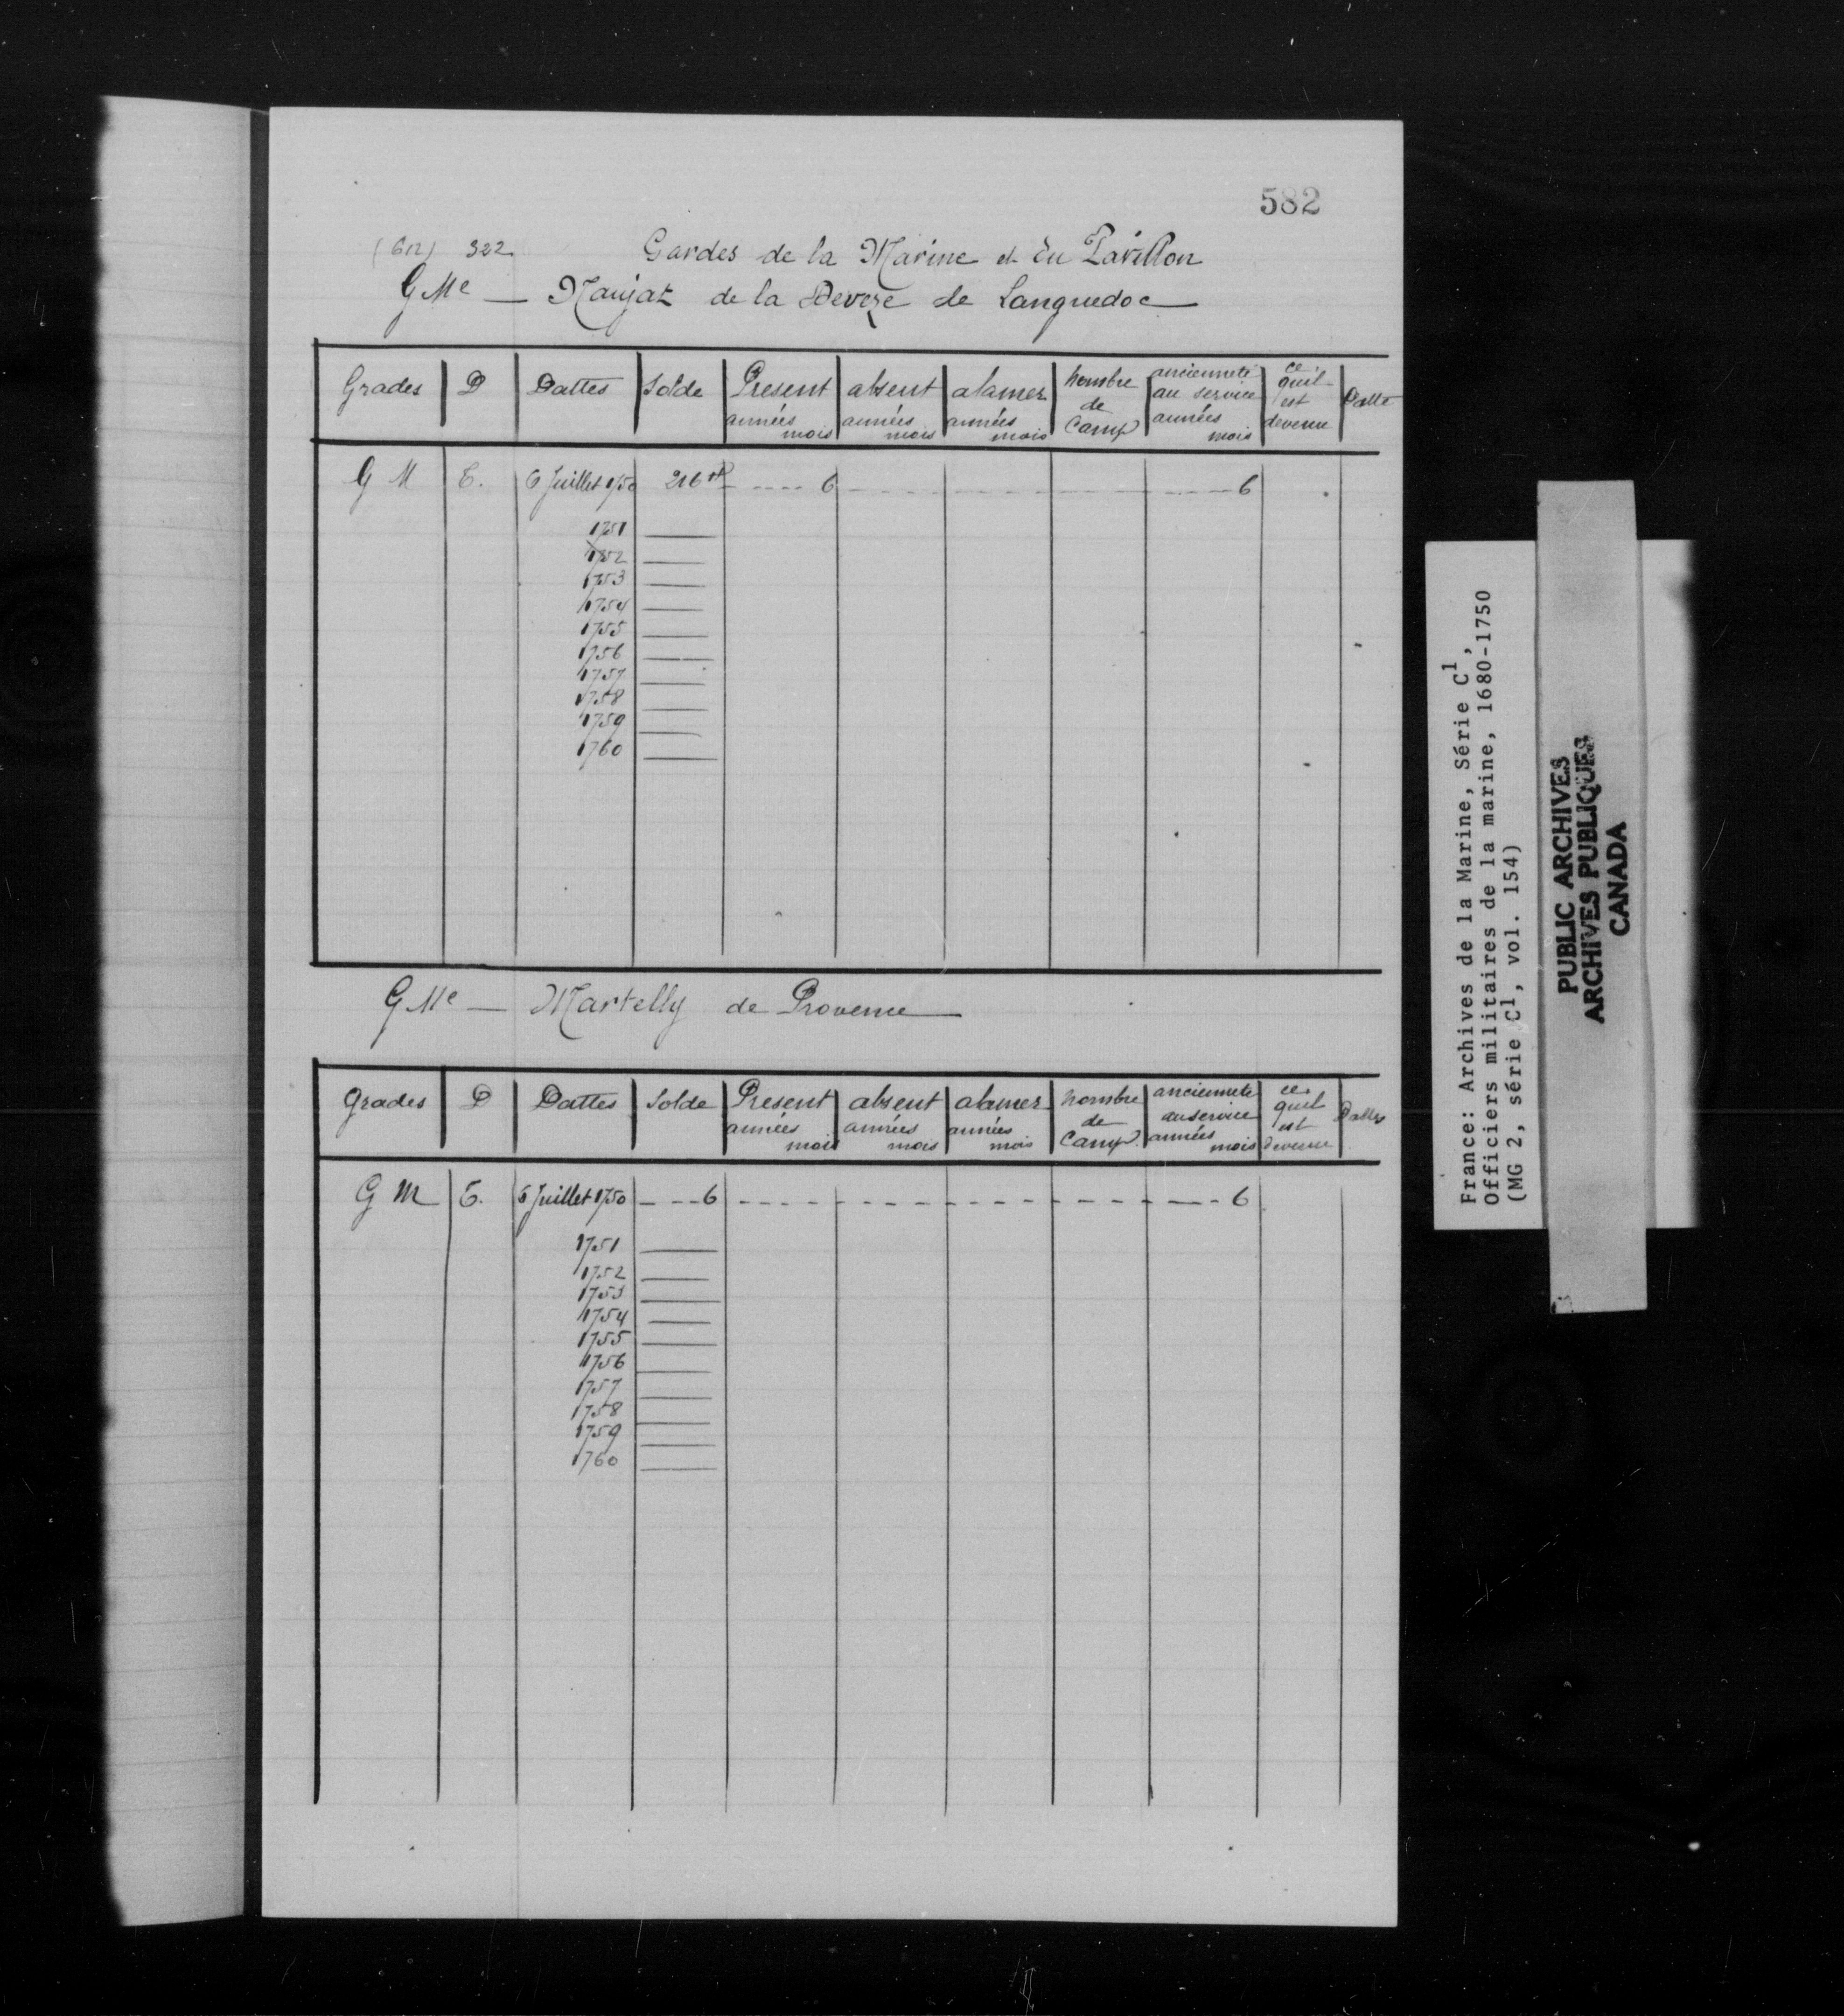 582
(612) 322 Gardes de la Marine et Du Pavillon
G Me — Naujat de la Deveze de Languedoc
Grades D Dattes Solde Present années mois absent années mois alamer années mois nombre de Camp ancienneté au service années mois ce quil est devenu Datte
G M T. 6 Juillet 1750 216 lt - - - - 6 - - - - 6
1751 —
1752 —
1753 —
1754 —
1755 —
1756 —
1757 —
1758 —
1759 —
1760 —
G Me — Martelly de Provence
Grades D Dattes Solde Present années mois absent années mois alamer années mois nombre de Camp. ancienneté au service années mois ce quil est devenu Dattes
G M T. 6 Juillet 1750 - - - 6 - - - - 6
1751 —
1752 —
1753 —
1754 —
1755 —
1756 —
1757 —
1758 —
1759 —
1760 —
France: Archives de la Marine, Série C1,
Officiers militaires de la marine, 1680-1750
(MG 2, série C1, vol. 154)
PUBLIC ARCHIVES
ARCHIVES PUBLIQUES
CANADA